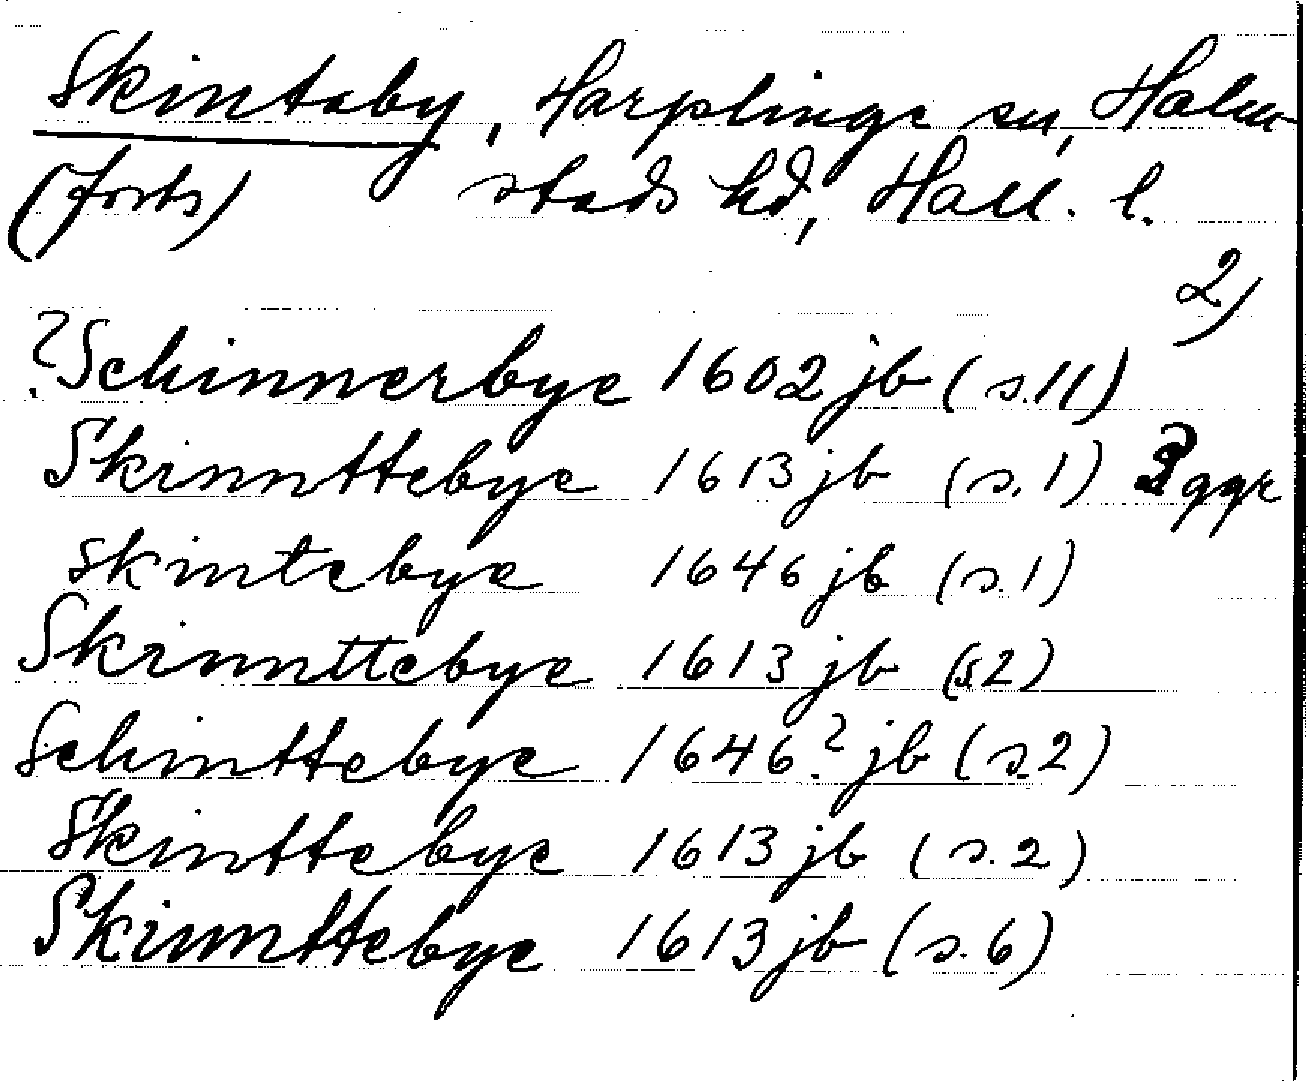 Skintaby, Harplinge sn, Halm-
(forts) stads hd, Hall. l.
2)
? Schinnerbye 1602 jb (s.11)
Skinnttebye 1613 jb (s.1) 3 ggr
Skintebye 1646 jb (s.1)
Skinnttebye 1613 jb (s.2)
Schinttebye 1646? jb (s.2)
Skinttebye 1613 jb (s.2)
Skinnttebye 1613 jb (s.6)